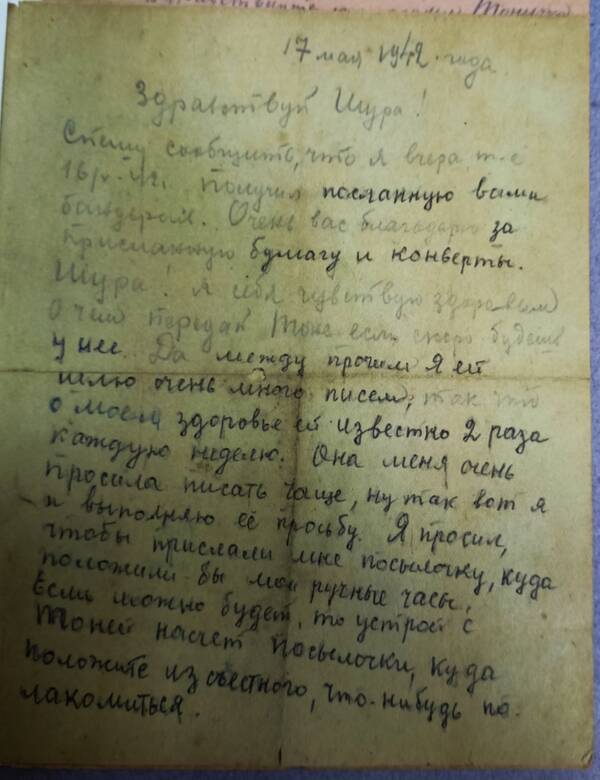 Тонечка
17 мая 1942 года
Здравствуй Шура!
Спешу сообщить, что я вчера т-е
16/V-42г. получил посланную вами
бандероль. Очень вас благодарю за
присланную бумагу и конверты.
Шура! Я себя чувствую здоровым
О чем передай Тоне если скоро будешь
у нее. Да между прочим я ей
шлю очень много писем, так что
о моем здоровье ей известно 2 раза
каждую неделю. Она меня очень
просила писать чаще, ну так вот я
и выполняю её просьбу. Я просил,
чтобы прислали мне посылочку, куда
положили бы мои ручные часы.
Если можно будет, то устрой с
Тоней насчет посылочки, куда
положите из съестного, что-нибудь по-
лакомиться.